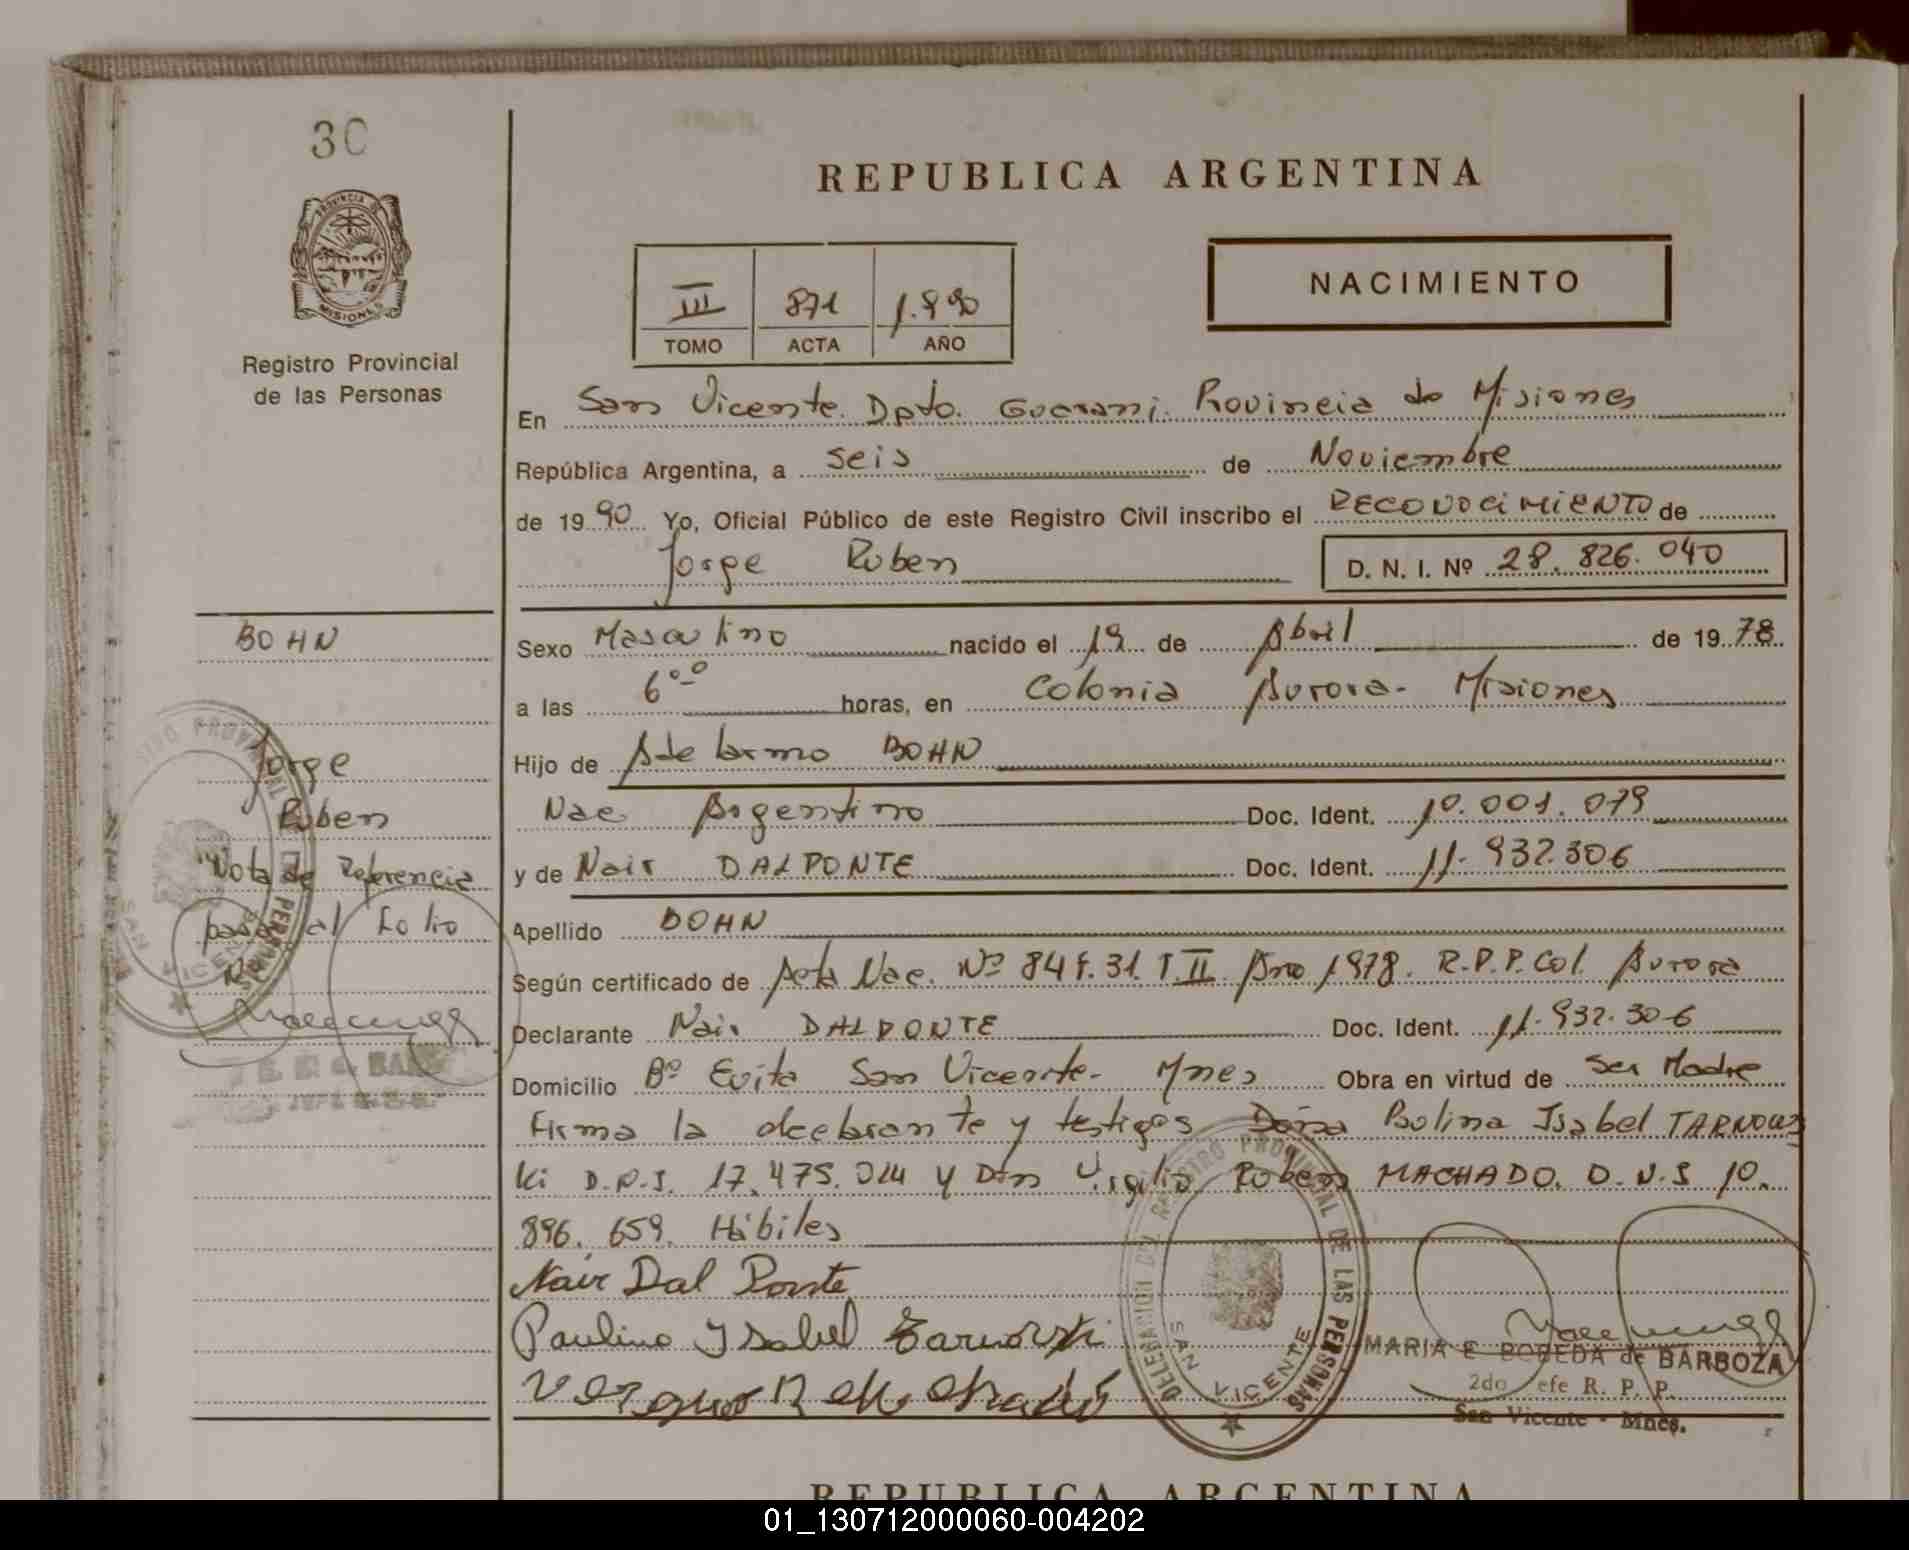 30
REPUBLICA ARGENTINA
PROVINCIA DE
MISIONES
Registro Provincial
de las Personas
NACIMIENTO
III 871 1.990
TOMO ACTA AÑO
En San Vicente. Dpto. Guarani. Provincia de Misiones
República Argentina, a seis de Noviembre
de 1990 Yo, Oficial Público de este Registro Civil inscribo el RECONOCIMIENTO de
Jorge Ruben D. N. I. Nº 28.826.040
BOHN
Jorge
Ruben
Nota de Referencia
pasa al Folio
Sexo Masculino nacido el 19 de Abril de 1978
a las 6°° horas, en Colonia Aurora- Misiones
Hijo de Adelarmo BOHN
Nac Argentino Doc. Ident. 10.001.079
y de Nair DALPONTE Doc. Ident. 11.932.306
Apellido BOHN
Según certificado de Acta Nac. Nº 84 f. 31. T. II Año 1978. R.P.P. Col. Aurora
Declarante Nair DALPONTE Doc. Ident. 11.932.306
Domicilio Bº Evita San Vicente- Mnes Obra en virtud de Ser Madre
Firma la declarante y testigos Doña Polina Isabel TARNOWS
Ki D.N.I. 17.475.014 y Don Virgilio Ruben MACHADO. D.N.I 10.
896.659. Hábiles
Nair Dal Ponte
Paulina Ysabel Tarnovski
DELEGACION DEL REGISTRO PROVINCIAL DE LAS PERSONAS
SAN VICENTE
MARIA E BOBEDA de BARBOZA
2do Jefe R. P. P.
San Vicente - Mnes.
REPUBLICA ARGENTINA
01_130712000060-004202